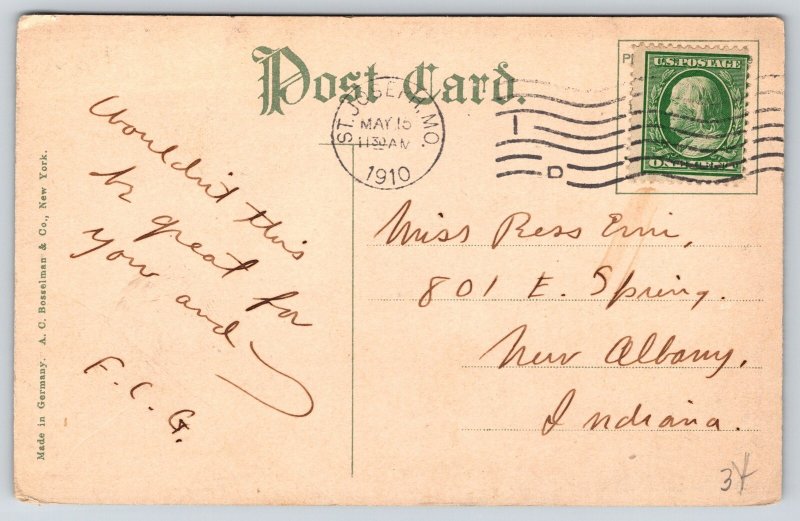 Post Card.
ST. JOSEPH, MO.
MAY 15
11 30 AM
1910
I
D
U.S. POSTAGE
Wouldn't this
be great for
you and
F. C. G.
Miss Ress
801 E. Spring.
New Albany,
Indiana.
Made in Germany. A. C. Bosselman & Co., New York.